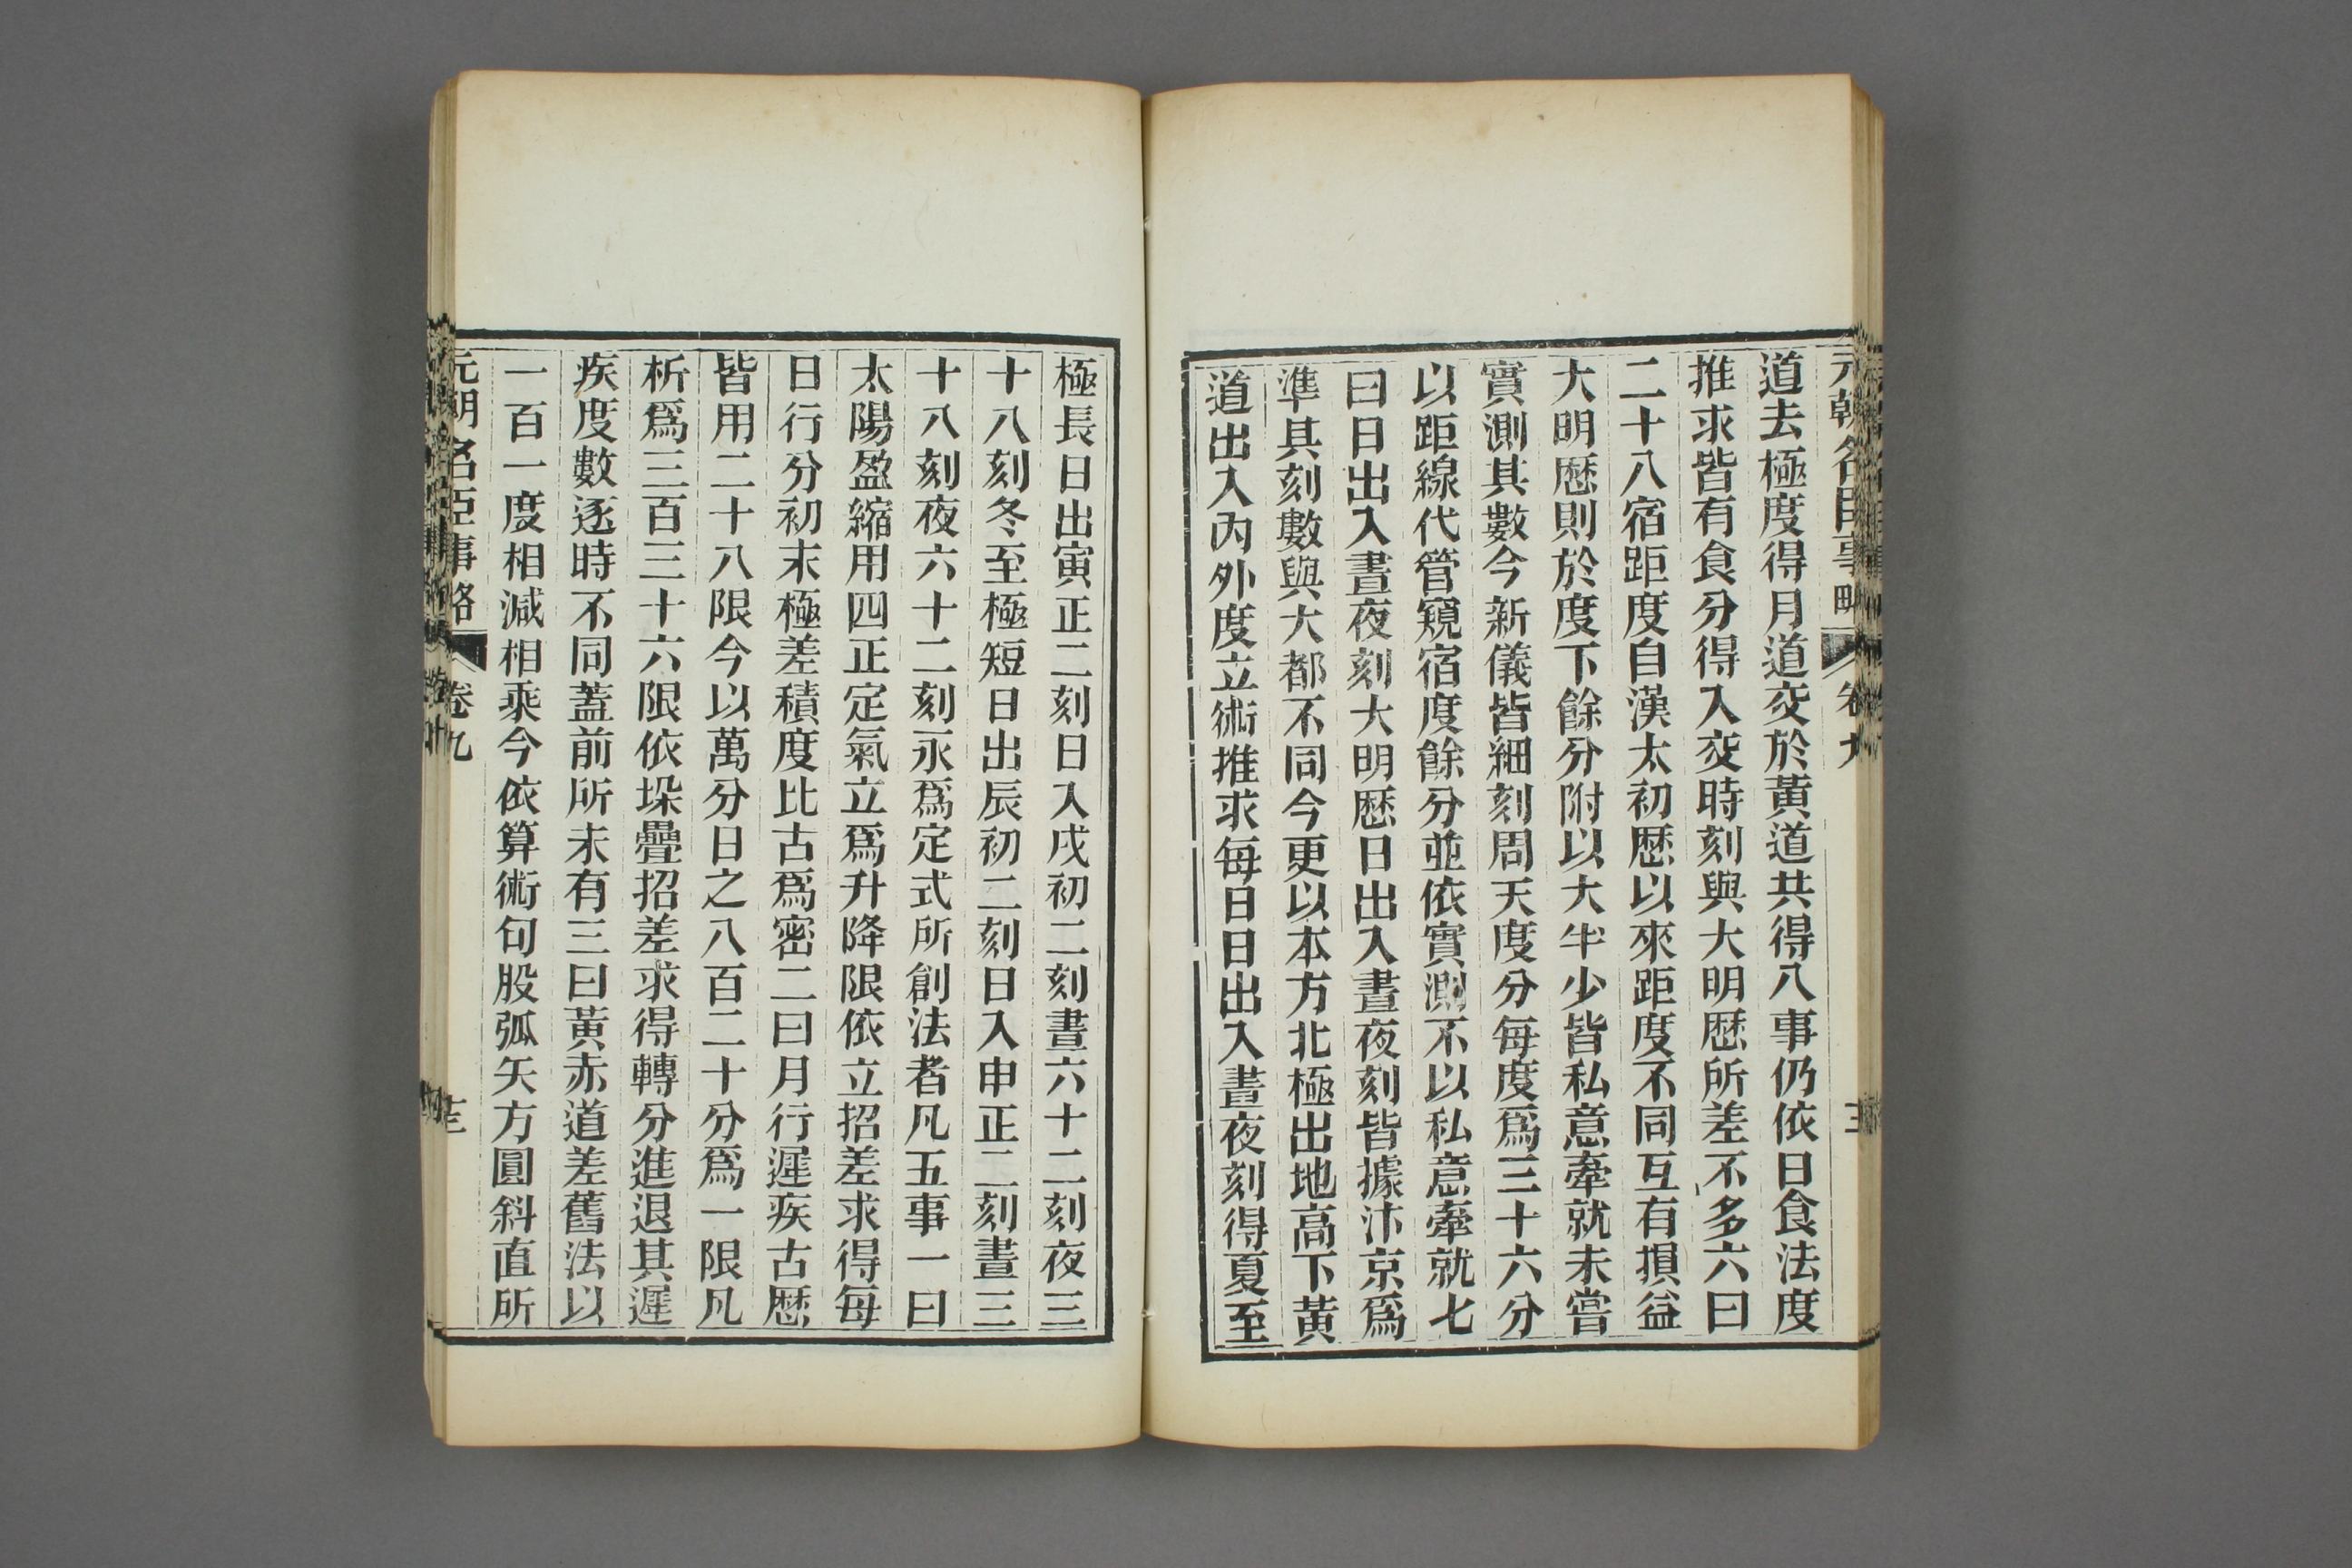 道去極度得月道交於黃道共得八事仍依日食法度
推求皆有食分得入交時刻與大明歷所差不多六曰
二十八宿距度自漢太初歷以來距度不同互有損益
大明歷則於度下餘分附以大半少皆私意牽就未嘗
實測其數今新儀皆細刻周天度分每度爲三十六分
以距線代管窺宿度餘分並依實測不以私意牽就七
曰日出入晝夜刻大明歷日出入晝夜刻皆據汴京爲
準其刻數與大都不同今更以本方北極出地高下黃
道出入內外度立術推求每日日出入晝夜刻得夏至
極長日出寅正二刻日入戌初二刻晝六十二刻夜三
十八刻冬至極短日出辰初二刻日入申正二刻晝三
十八刻夜六十二刻永爲定式所創法者凡五事一曰
太陽盈縮用四正定氣立爲升降限依立招差求得每
日行分初末極差積度比古爲密二曰月行遲疾古歷
皆用二十八限今以萬分日之八百二十分爲一限凡
析爲三百三十六限依垜疊招差求得轉分進退其遲
疾度數逐時不同蓋前所未有三曰黃赤道差舊法以
一百一度相減相乘今依算術句股弧矢方圓斜直所
元朝名臣事略 卷九